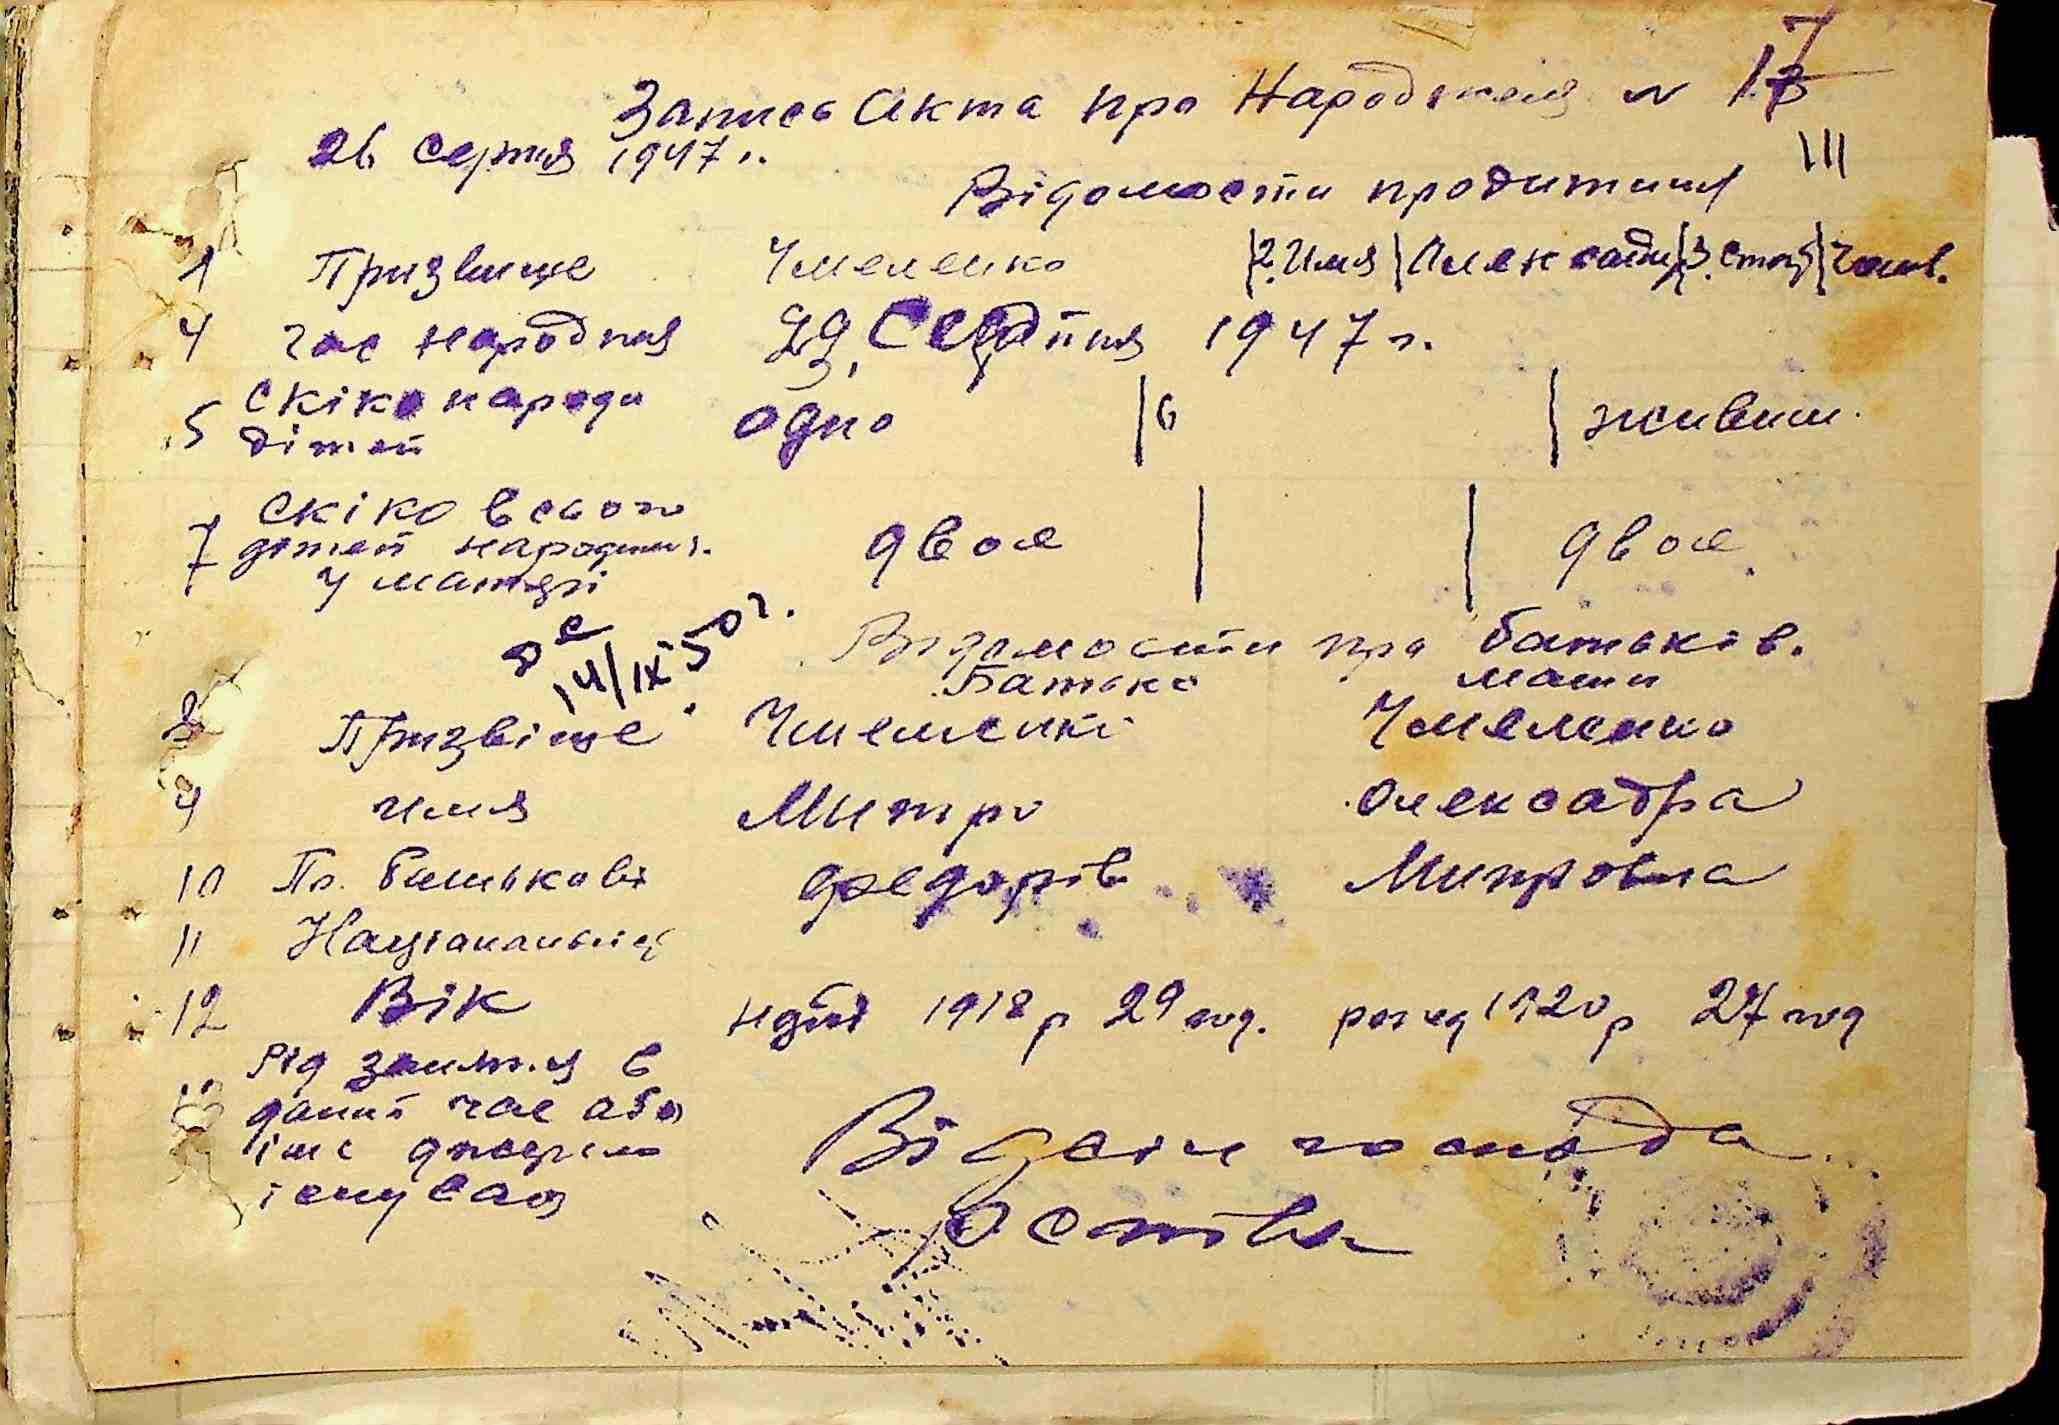 Запись Акта про Народженя N 17
26 серпня 1947 г.
III
Відомости про дитини
1 Призвище Чмеленко 2. Имя Олександр 3. Стать Чолов.
4 час народня Серпня 1947 г.
5 Скіко народи дітей одно 6 живими
7 Скіко всього дітей народил. у матері двое двое
14/IX 50 г.
Відомости про батьків.
Батько мати
8 Призвіще Чмеленко Чмеленко
9 имя Митро Олександра
10 По батькові Федорів Митровна
11 Національніст
12 Вік 1918 р 29 год. 1920 р 27 год
Рід заняття в даний час або існував